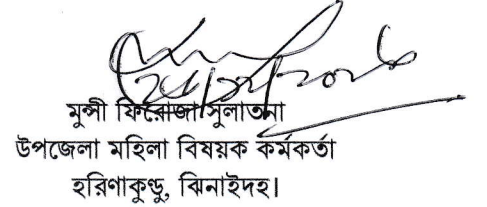 মুন্সী ফিরোজা সুলাতনা
উপজেলা মহিলা বিষয়ক কর্মকর্তা
হরিণাকুন্ডু, ঝিনাইদহ।